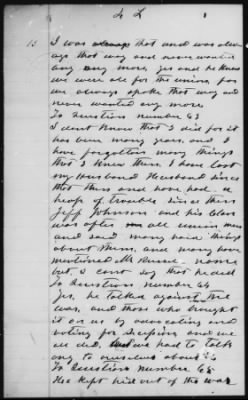 I was always that and was alway
that way and never wanted
any more yes and he knew
we were all for the union for
we always spoke that way and
never wanted any more
To Question number 63
I dont know that I did for it
has been many years and I
have forgotten many things
that I knew then. I have lost
my Husband since
that time and have had a
heap of trouble since then
Jeff Johnson and his Clan
was after all union men
and said many things
about them, and many have
mentioned name
but I cant say that he did
To Question number 64
Yes, he talked against the
war, and those who brought
it on us by advocating and
voting for Secession and we
all did, but we had to talk
to ourselves about
To Question number 65
He kept hid out of the war